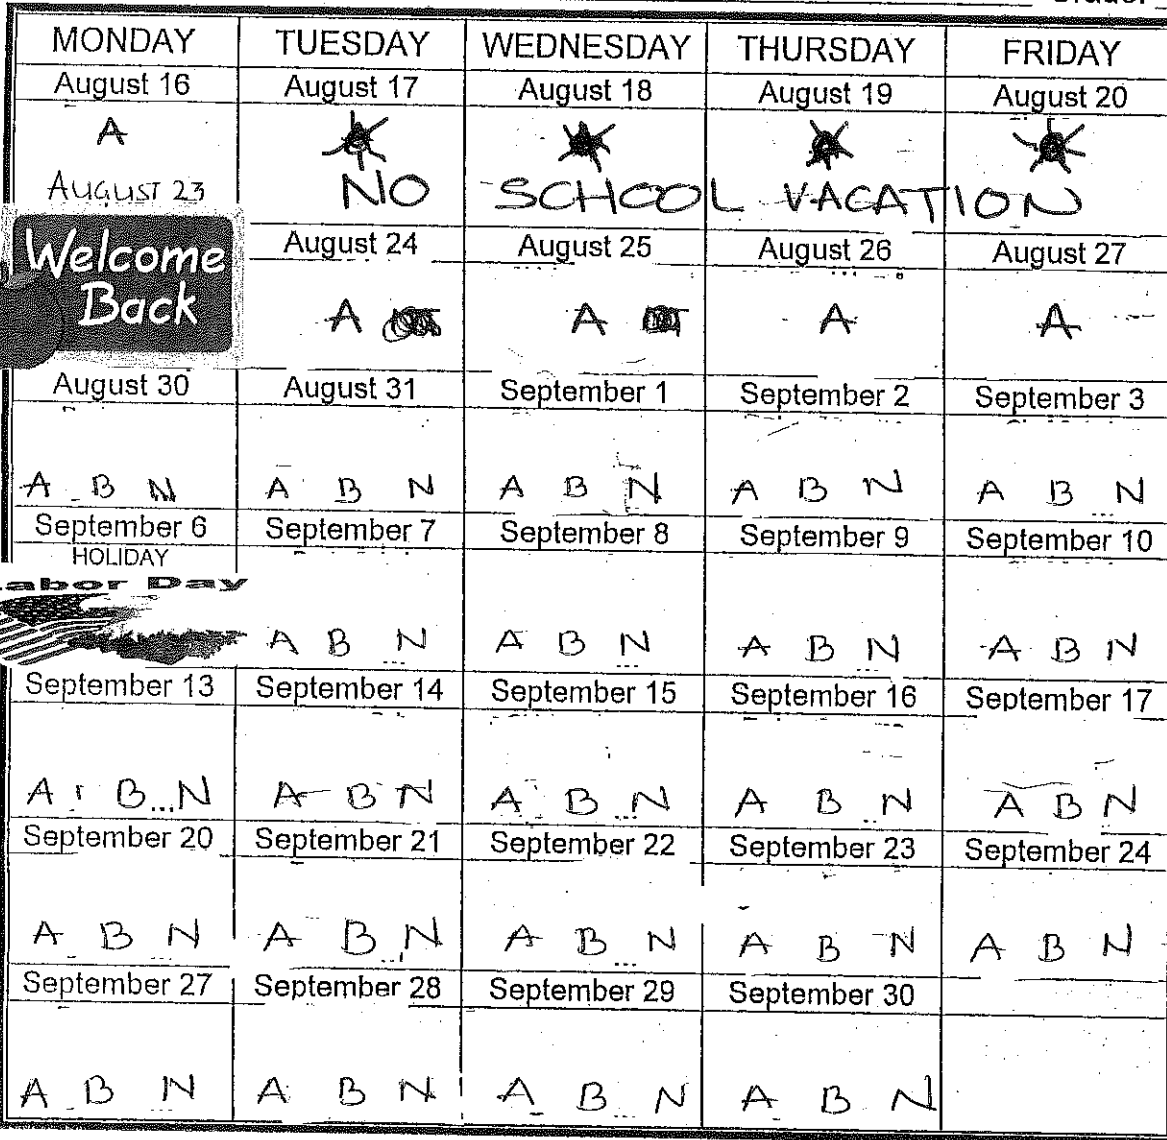 MONDAY TUESDAY WEDNESDAY THURSDAY FRIDAY
August 16 August 17 August 18 August 19 August 20
A
AUGUST 23 NO SCHOOL VACATION
Welcome
Back
August 24 August 25 August 26 August 27
A A A A
August 30 August 31 September 1 September 2 September 3
A B N A B N A B N A B N A B N
September 6 September 7 September 8 September 9 September 10
HOLIDAY
Labor Day
A B N A B N A B N A B N
September 13 September 14 September 15 September 16 September 17
A B N A B N A B N A B N A B N
September 20 September 21 September 22 September 23 September 24
A B N A B N A B N A B N A B N
September 27 September 28 September 29 September 30
A B N A B N A B N A B N